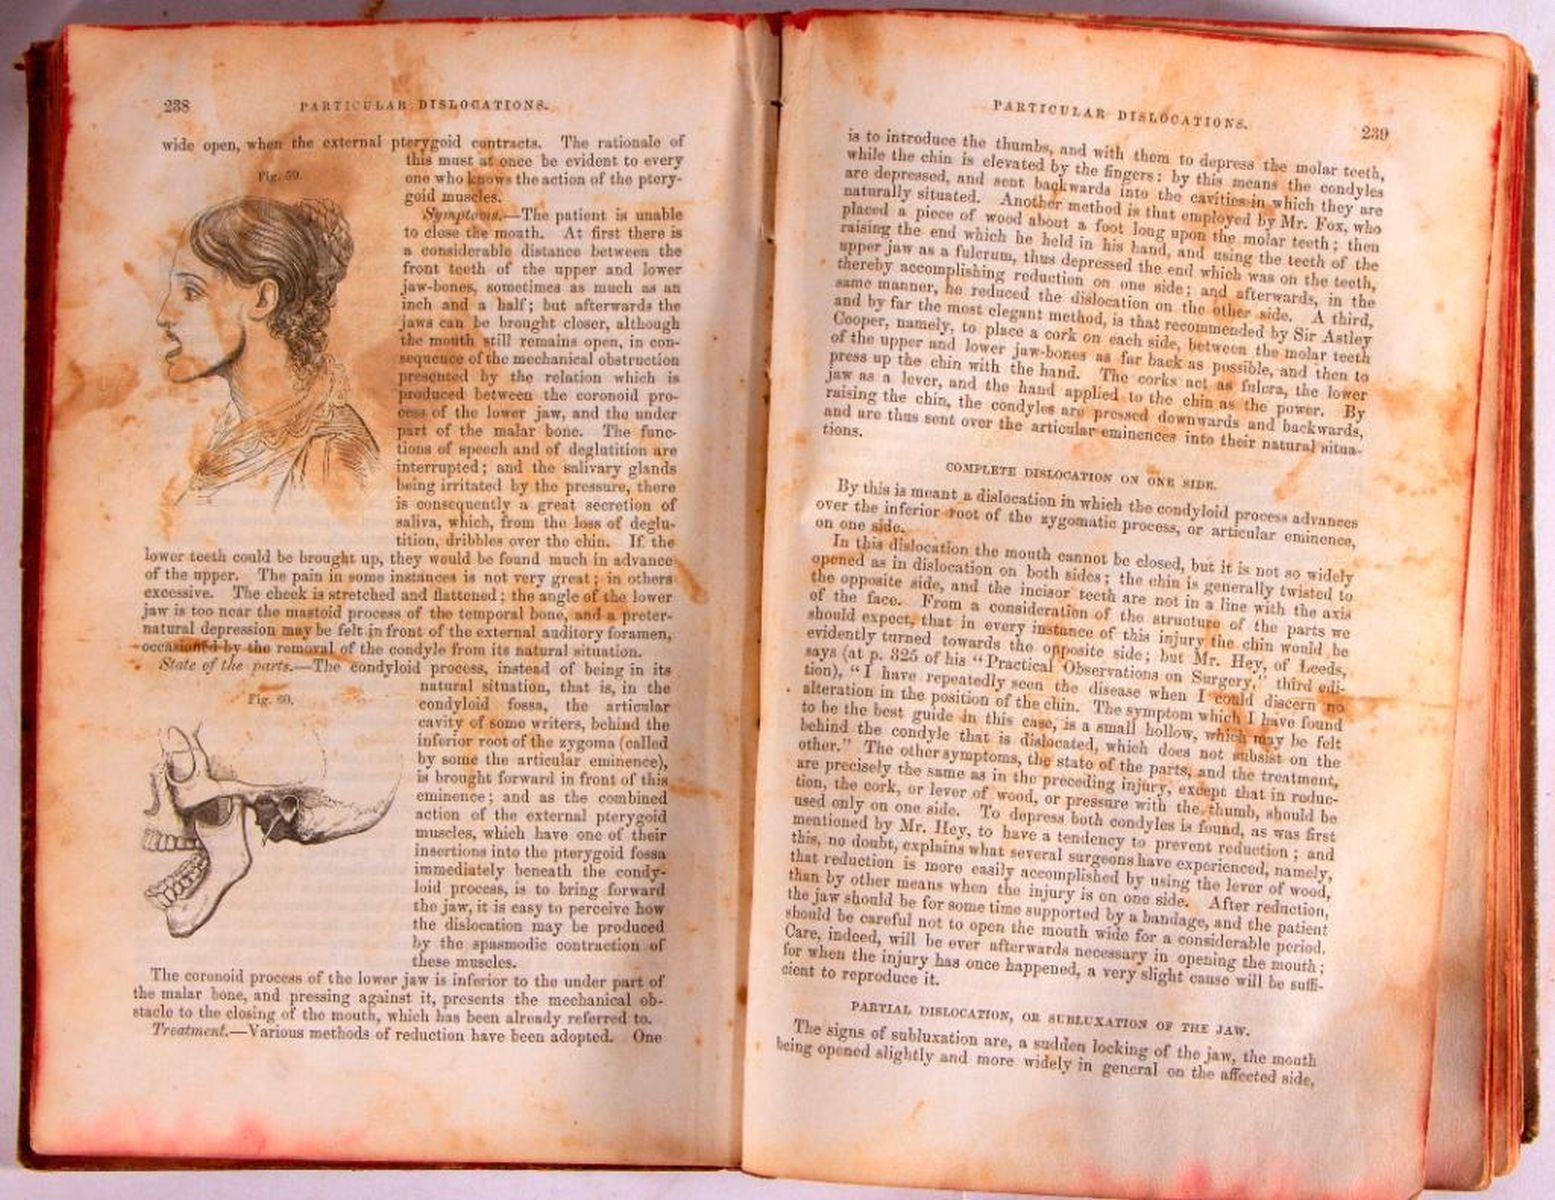 238
PARTICULAR DISLOCATIONS.
wide open, when the external pterygoid contracts. The rationale of
this must at once be evident to every
one who knows the action of the ptery-
goid muscles.
Fig. 59.
Symptoms.—The patient is unable
to close the mouth. At first there is
a considerable distance between the
front teeth of the upper and lower
jaw-bones, sometimes as much as an
inch and a half; but afterwards the
jaws can be brought closer, although
the mouth still remains open, in con-
sequence of the mechanical obstruction
presented by the relation which is
produced between the coronoid pro-
cess of the lower jaw, and the under
part of the malar bone. The func-
tions of speech and of deglutition are
interrupted; and the salivary glands
being irritated by the pressure, there
is consequently a great secretion of
saliva, which, from the loss of deglu-
tition, dribbles over the chin. If the
lower teeth could be brought up, they would be found much in advance
of the upper. The pain in some instances is not very great; in others
excessive. The cheek is stretched and flattened; the angle of the lower
jaw is too near the mastoid process of the temporal bone, and a preter-
natural depression may be felt in front of the external auditory foramen,
occasioned by the removal of the condyle from its natural situation.
State of the parts.—The condyloid process, instead of being in its
natural situation, that is, in the
condyloid fossa, the articular
cavity of some writers, behind the
inferior root of the zygoma (called
by some the articular eminence),
is brought forward in front of this
eminence; and as the combined
action of the external pterygoid
muscles, which have one of their
insertions into the pterygoid fossa
immediately beneath the condy-
loid process, is to bring forward
the jaw, it is easy to perceive how
the dislocation may be produced
by the spasmodic contraction of
these muscles.
Fig. 60.
The coronoid process of the lower jaw is inferior to the under part of
the malar bone, and pressing against it, presents the mechanical ob-
stacle to the closing of the mouth, which has been already referred to.
Treatment.—Various methods of reduction have been adopted. One
PARTICULAR DISLOCATIONS.
239
is to introduce the thumbs, and with them to depress the molar teeth,
while the chin is elevated by the fingers: by this means the condyles
are depressed, and sent backwards into the cavities in which they are
naturally situated. Another method is that employed by Mr. Fox, who
placed a piece of wood about a foot long upon the molar teeth; then
raising the end which he held in his hand, and using the teeth of the
upper jaw as a fulcrum, thus depressed the end which was on the teeth,
thereby accomplishing reduction on one side; and afterwards, in the
same manner, he reduced the dislocation on the other side. A third,
and by far the most elegant method, is that recommended by Sir Astley
Cooper, namely, to place a cork on each side, between the molar teeth
of the upper and lower jaw-bones as far back as possible, and then to
press up the chin with the hand. The corks act as fulcra, the lower
jaw as a lever, and the hand applied to the chin as the power. By
raising the chin, the condyles are pressed downwards and backwards,
and are thus sent over the articular eminences into their natural situa-
tions.
COMPLETE DISLOCATION ON ONE SIDE.
By this is meant a dislocation in which the condyloid process advances
over the inferior root of the zygomatic process, or articular eminence,
on one side.
In this dislocation the mouth cannot be closed, but it is not so widely
opened as in dislocation on both sides; the chin is generally twisted to
the opposite side, and the incisor teeth are not in a line with the axis
of the face. From a consideration of the structure of the parts we
should expect, that in every instance of this injury the chin would be
evidently turned towards the opposite side; but Mr. Hey, of Leeds,
says (at p. 325 of his "Practical Observations on Surgery," third edi-
tion), "I have repeatedly seen the disease when I could discern no
alteration in the position of the chin. The symptom which I have found
to be the best guide in this case, is a small hollow, which may be felt
behind the condyle that is dislocated, which does not subsist on the
other." The other symptoms, the state of the parts, and the treatment,
are precisely the same as in the preceding injury, except that in reduc-
tion, the cork, or lever of wood, or pressure with the thumb, should be
used only on one side. To depress both condyles is found, as was first
mentioned by Mr. Hey, to have a tendency to prevent reduction; and
this, no doubt, explains what several surgeons have experienced, namely,
that reduction is more easily accomplished by using the lever of wood,
than by other means when the injury is on one side. After reduction,
the jaw should be for some time supported by a bandage, and the patient
should be careful not to open the mouth wide for a considerable period.
Care, indeed, will be ever afterwards necessary in opening the mouth;
for when the injury has once happened, a very slight cause will be suffi-
cient to reproduce it.
PARTIAL DISLOCATION, OR SUBLUXATION OF THE JAW.
The signs of subluxation are, a sudden locking of the jaw, the mouth
being opened slightly and more widely in general on the affected side,